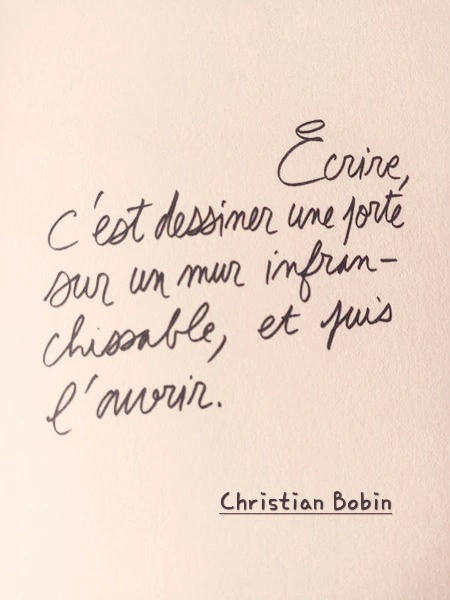 Écrire,
c'est dessiner une porte
sur un mur infran-
chissable, et puis
l'ouvrir.
Christian Bobin